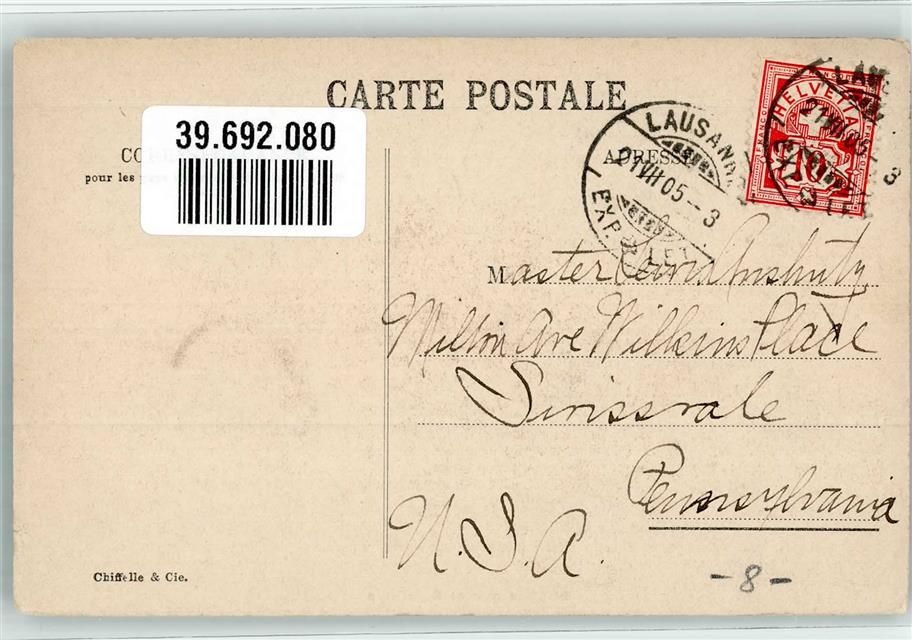 CARTE POSTALE
39.692.080
pour les
ADRESSE
LAUSANNE
VII 05 -- 3
EXP. LET.
HELVETIA
10
Master Anshutz
Milton Ave Wilkins Place
Swissvale
Pennsylvania
U.S.A.
Chiffelle & Cie.
- 8 -